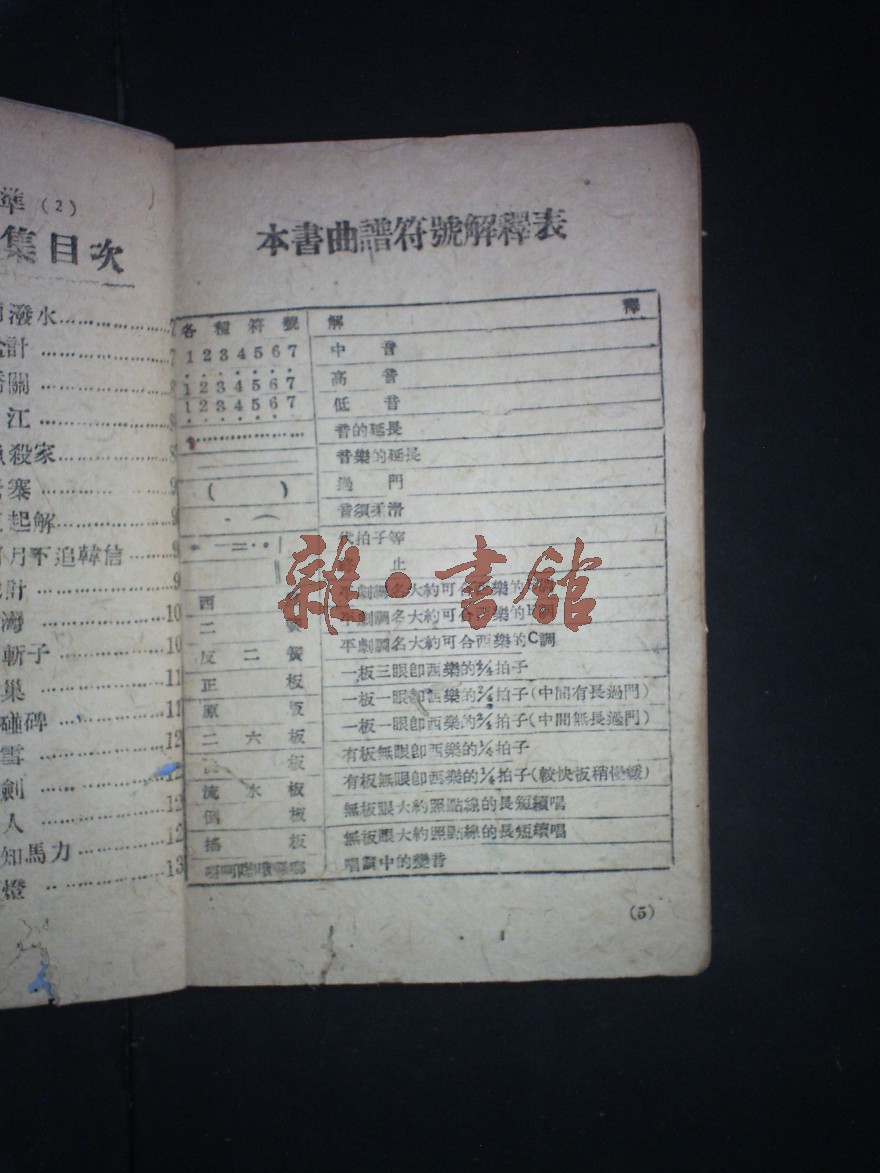 準 (2)
集目次
潑水 7
計 7
關 8
江 8
殺家 8
寨 9
起解 9
月下追韓信 9
計 9
灣 10
斬子 10
巢 11
碰碑 11
雪 12
劍 12
人 12
知馬力 12
燈 13
本書曲譜符號解釋表
各種符號 解釋
1 2 3 4 5 6 7 中音
1 2 3 4 5 6 7 高音
1 2 3 4 5 6 7 低音
音的延長
音樂的延長
( ) 過門
音須柔滑
代拍子等
止
西 平劇調名大約可合西樂的
二 平劇調名大約可合西樂的
反二簧 平劇調名大約可合西樂的C調
正板 一板三眼卽西樂的4/4拍子
原板 一板一眼卽西樂的2/4拍子(中間有長過門)
二六板 一板一眼卽西樂的2/4拍子(中間無長過門)
板 有板無眼卽西樂的1/4拍子
流水板 有板無眼卽西樂的1/4拍子(較快板稍慢緩)
倒板 無板眼大約照點線的長短續唱
搖板 無板眼大約照點線的長短續唱
唱詞中的變音
(5)
雜·書館